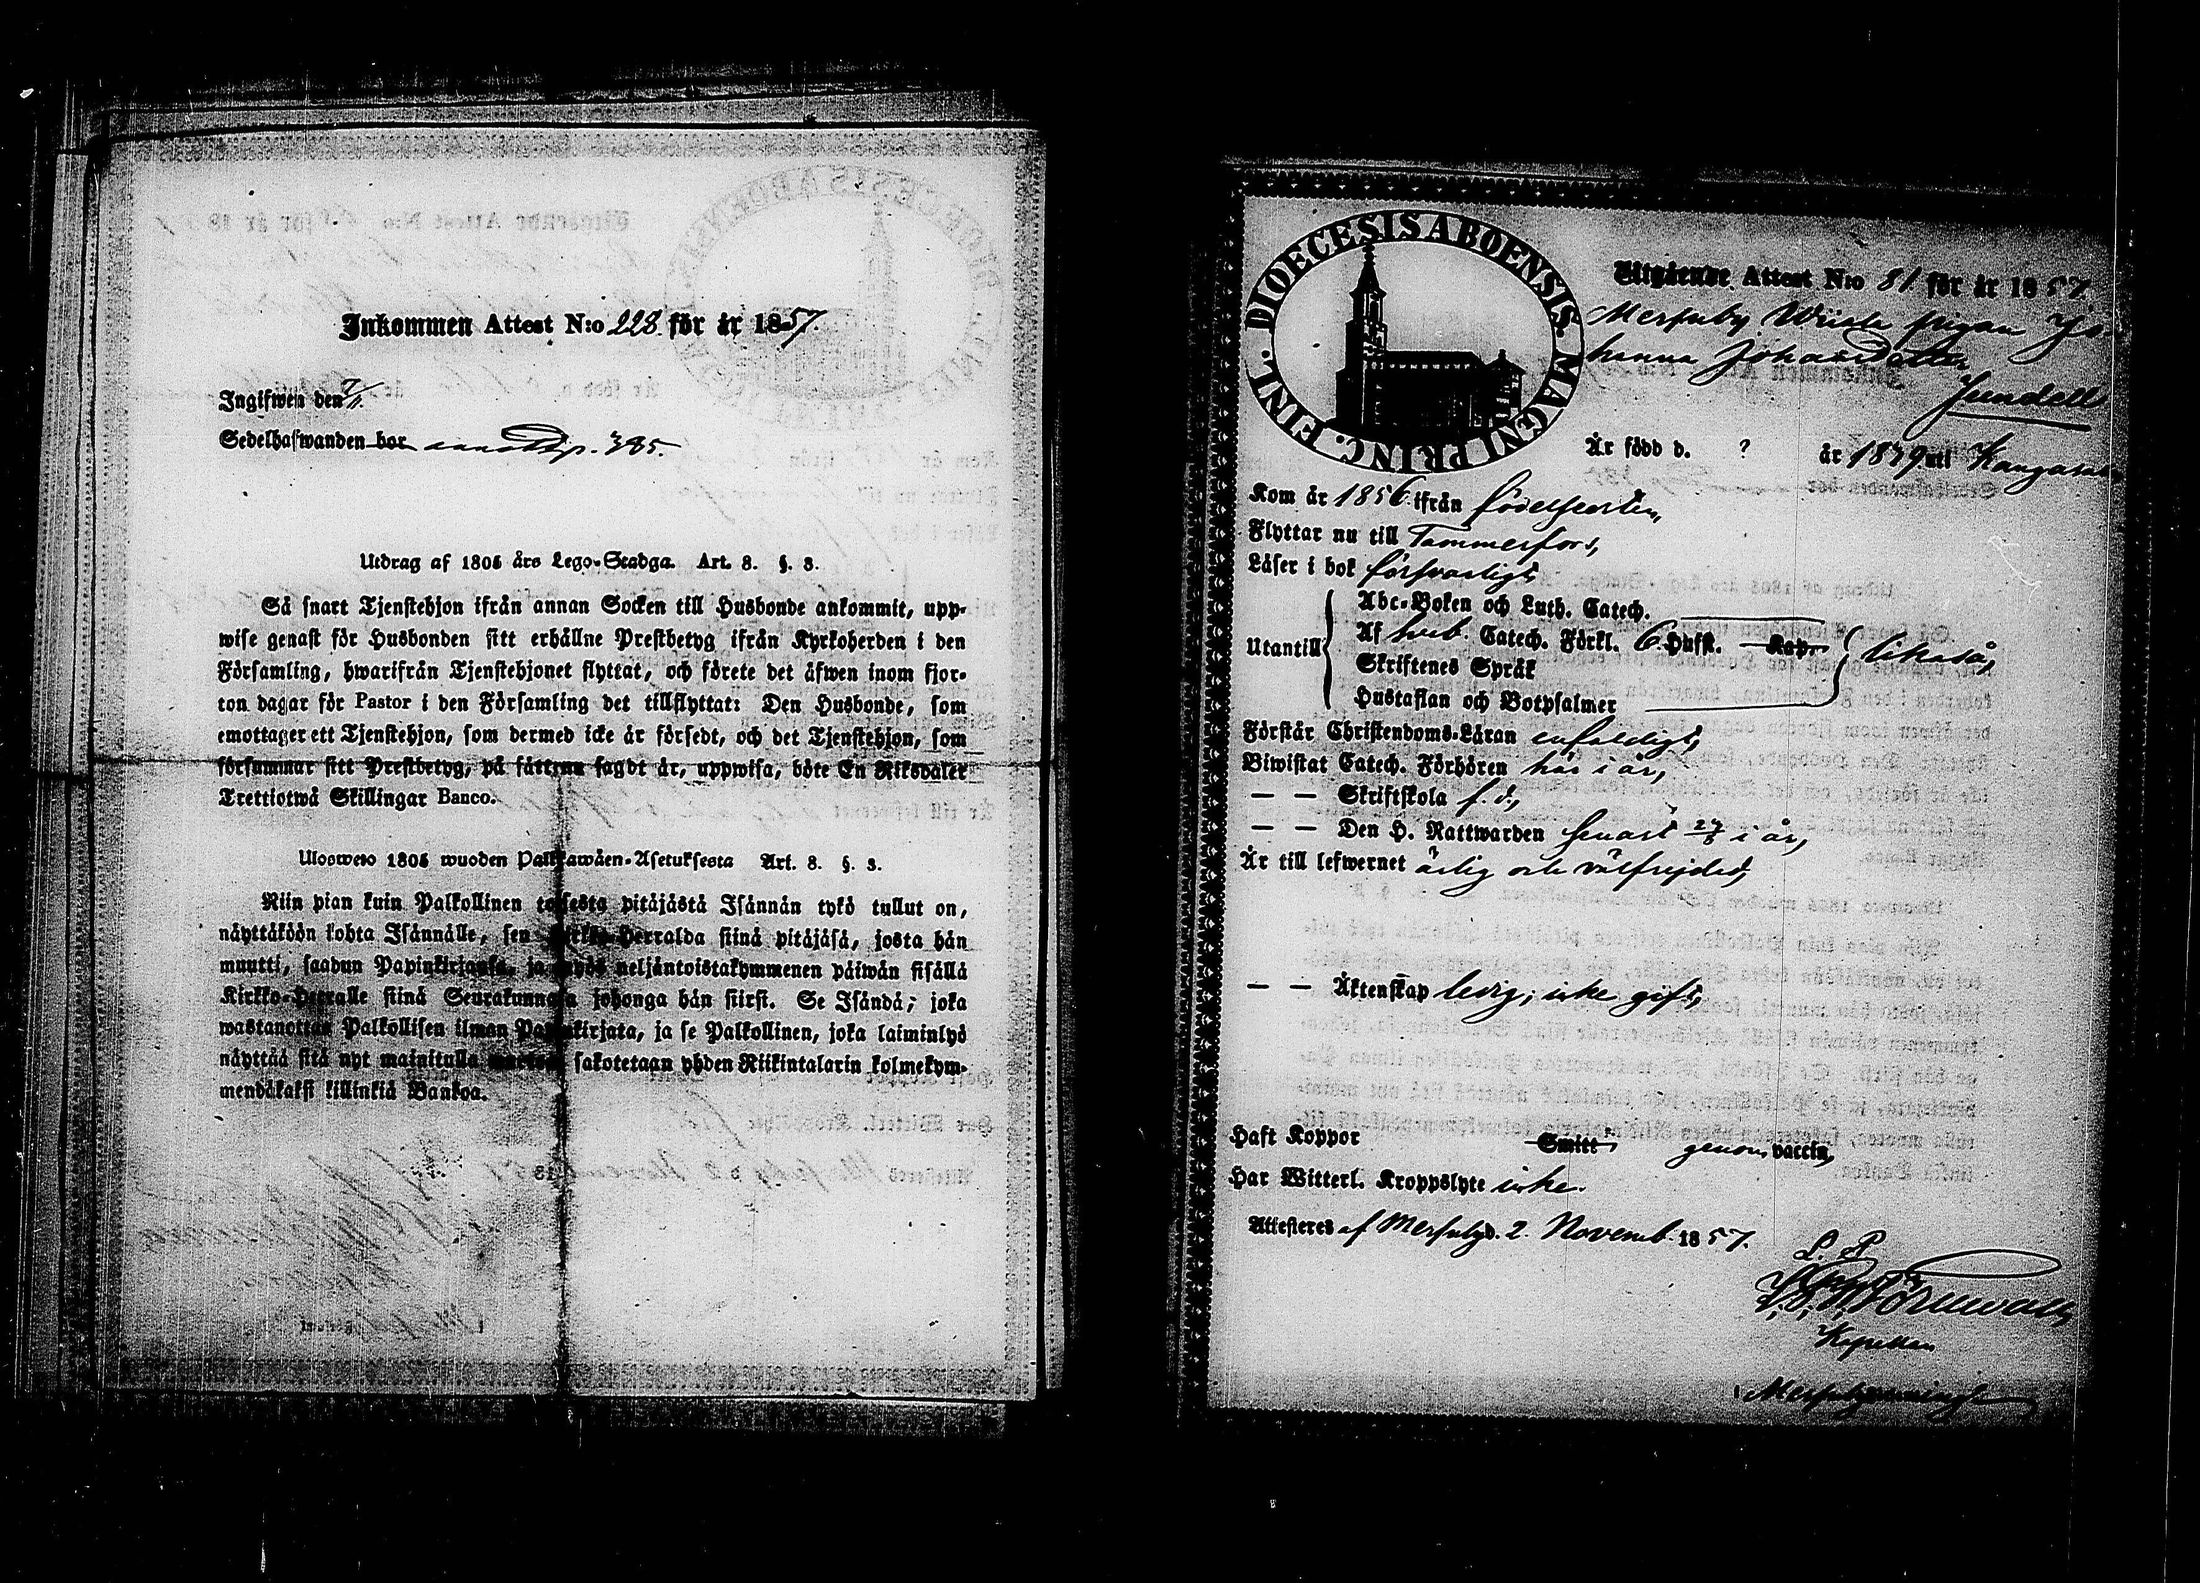 Inkommen Attest N:o 228. för år 1857.
Ingifwen den 7/11.
Sedelhafwanden bor p. 385.
Utdrag af 1805 års Lego-Stadga. Art. 8. §. 3.
Så snart Tjenstehjon ifrån annan Socken till Husbonde ankommit, upp-
wise genast för Husbonden sitt erhållne Prestbetyg ifrån Kyrkoherden i den
Församling, hwarifrån Tjenstehjonet flyttat, och förete det äfwen inom fjor-
ton dagar för Pastor i den Församling det tillflyttat: Den Husbonde, som
emottager ett Tjenstehjon, som dermed icke är försedt, och det Tjenstehjon, som
försummar sitt Prestbetyg, på sätt nu sagdt är, uppwisa, böte En Riksdaler
Trettiotwå Skillingar Banco.
Ulosweto 1805 wuoden Palkkawäen-Asetuksesta Art. 8. §. 3.
Niin pian kuin Palkollinen toisesta pitäjästä Isännän tykö tullut on,
näyttäköön kohta Isännälle, sen Kirkko-Herralda siinä pitäjäsä, josta hän
muutti, saadun Papinkirjansa, ja myös neljäntoistakymmenen päiwän sisällä
Kirkko-Herralle siinä Seurakunnasa johonga hän siirsi. Se Isändä, joka
wastanottaa Palkollisen ilman Papinkirjata, ja se Palkollinen, joka laiminlyö
näyttää sitä nyt mainitulla muotoa sakotetaan yhden Riikintalarin kolmekym-
mendäkaksi killinkiä Bankoa.
DIOECESIS ABOENSIS. MAGNI PRINC. FINL.
Utgående Attest N:o 81 för år 1857.
Messuby, Wiiala pigan Jo
hanna Johansdotter
Sundell
Är född d. ? år 1839 uti Kangasala
Kom år 1856 ifrån födelseorten,
Flyttar nu till Tammerfors,
Läser i bok försvarligt
Utantill
Abc-Boken och Luth. Catech.
Af Sveb. Catech. Förkl. 6 Hufst. Kap.
Skriftenes Språk
Hustaflan och Botpsalmer
likaså,
Förstår Christendoms-Läran enfaldigt,
Biwistat Catech. Förhören här i år,
— — Skriftskola f. d.,
— — Den H. Nattwarden senast 27/9 i år,
Är till lefwernet ärlig och välfrejdad,
— — Äktenskap ledig; icke gift,
Haft Koppor Smitt genom vaccin,
Har Witterl. Kroppslyte icke.
Attesteres af Messuby d. 2. Novemb. 1857.
L. P.
Törnwall,
Kapellan
i Messuby